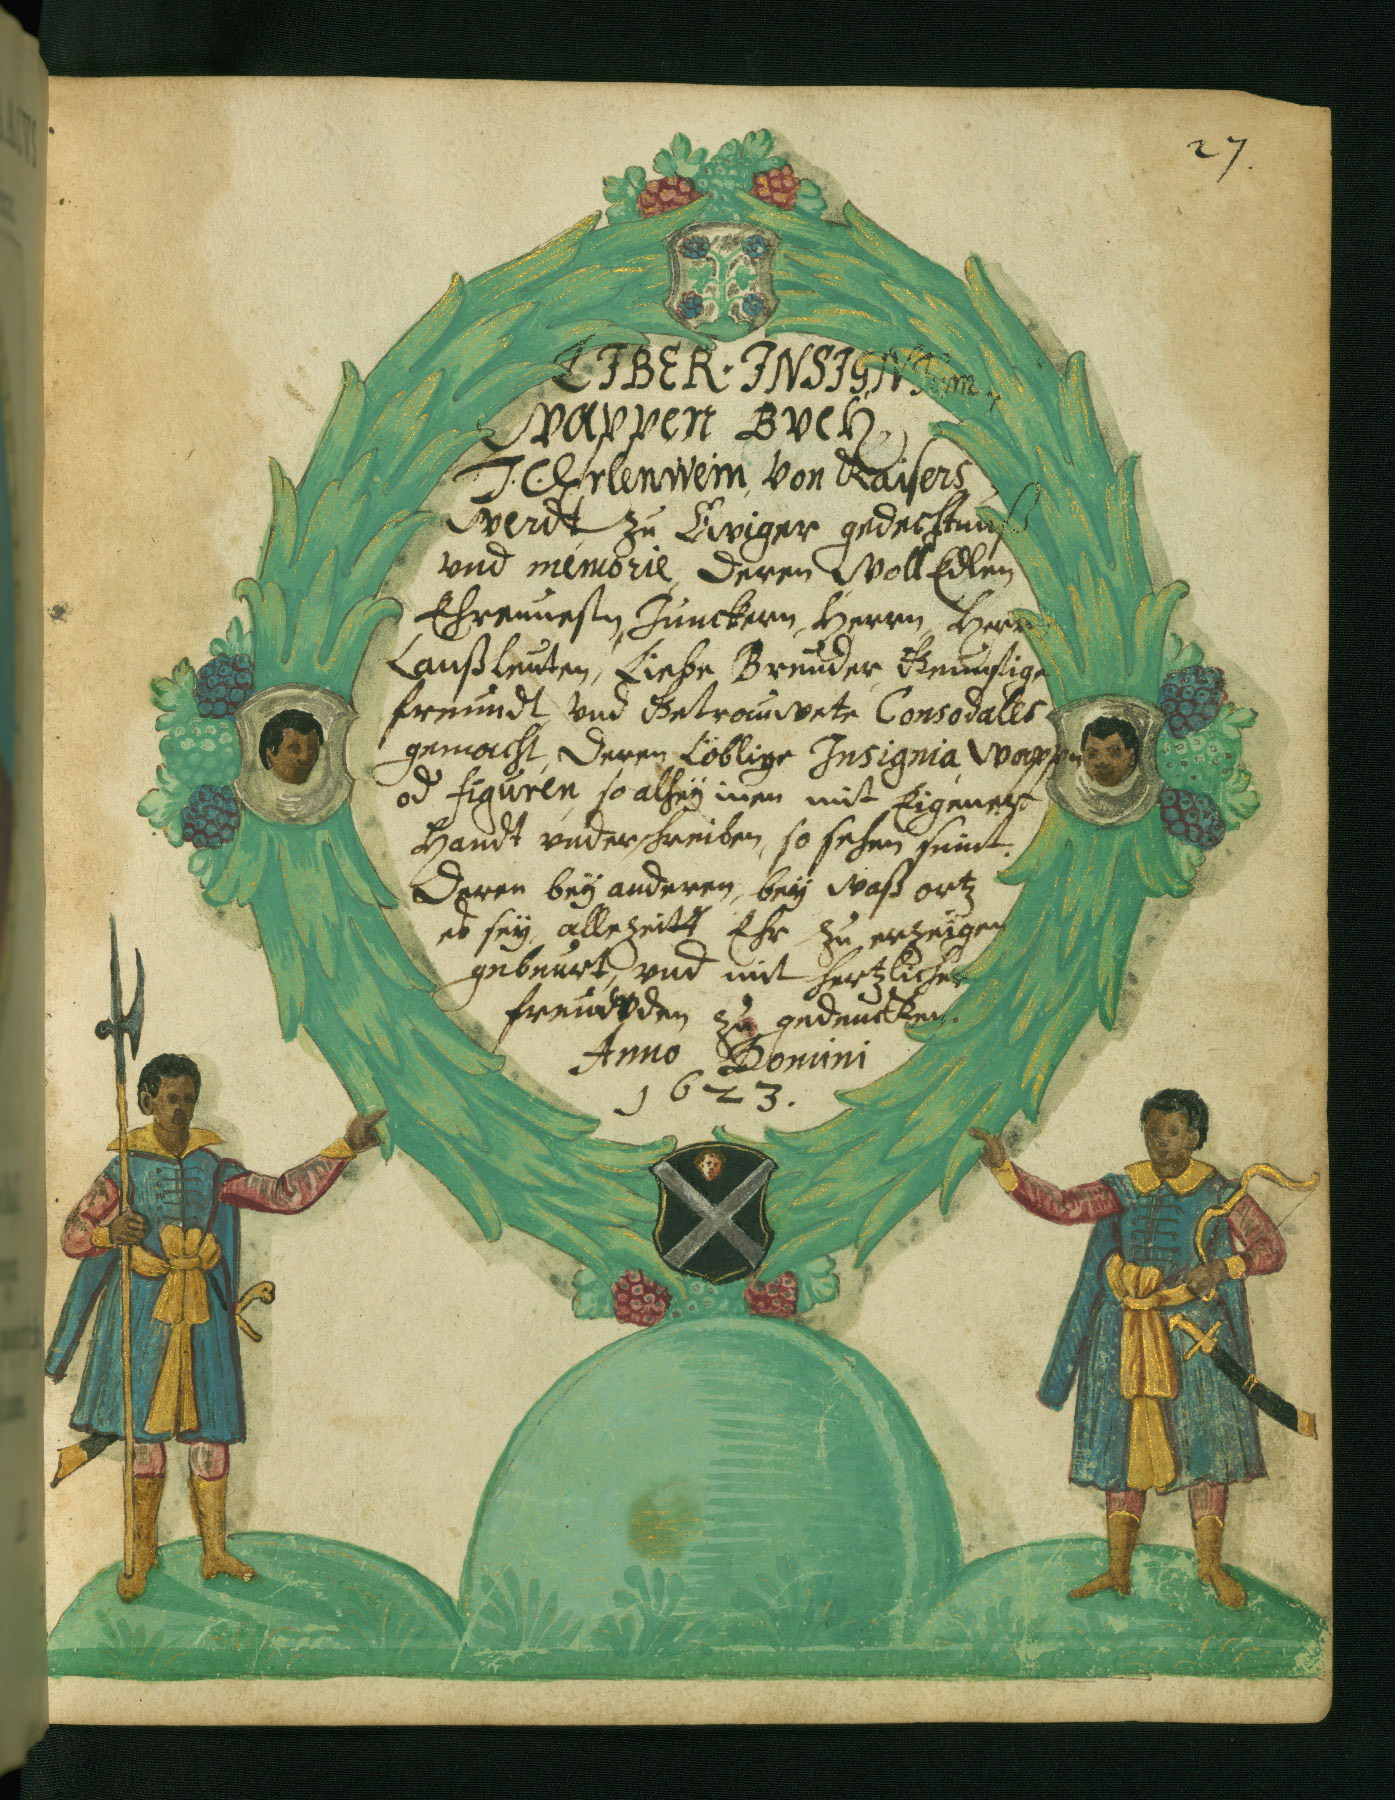 27.
LIBER · INSIGNIum,
Wappen Buch,
J. C. Erlenwein, von Kaisers
Werdt zu Ewiger gedechtnuß
vnd memorie, Deren WollEdlen
Ehrenuesten, Junckern, Herrn, Herrn
Lanßleuten, Liebe Breuder, Geunstige
freundt, vnd Getrauwete Consodales
gemacht, Deren Löblige Insignia, Wappen
od figuren, so alhey inen mit Eigener
Handt vnderschreiben, so sehen seint.
Deren bey anderen, bey waß ortz
es sey, allezeitt Ehr zu erzeigen
gebeurt, vnd mit hertzlicher
freudden zu gedencken.
Anno Domini
1623.